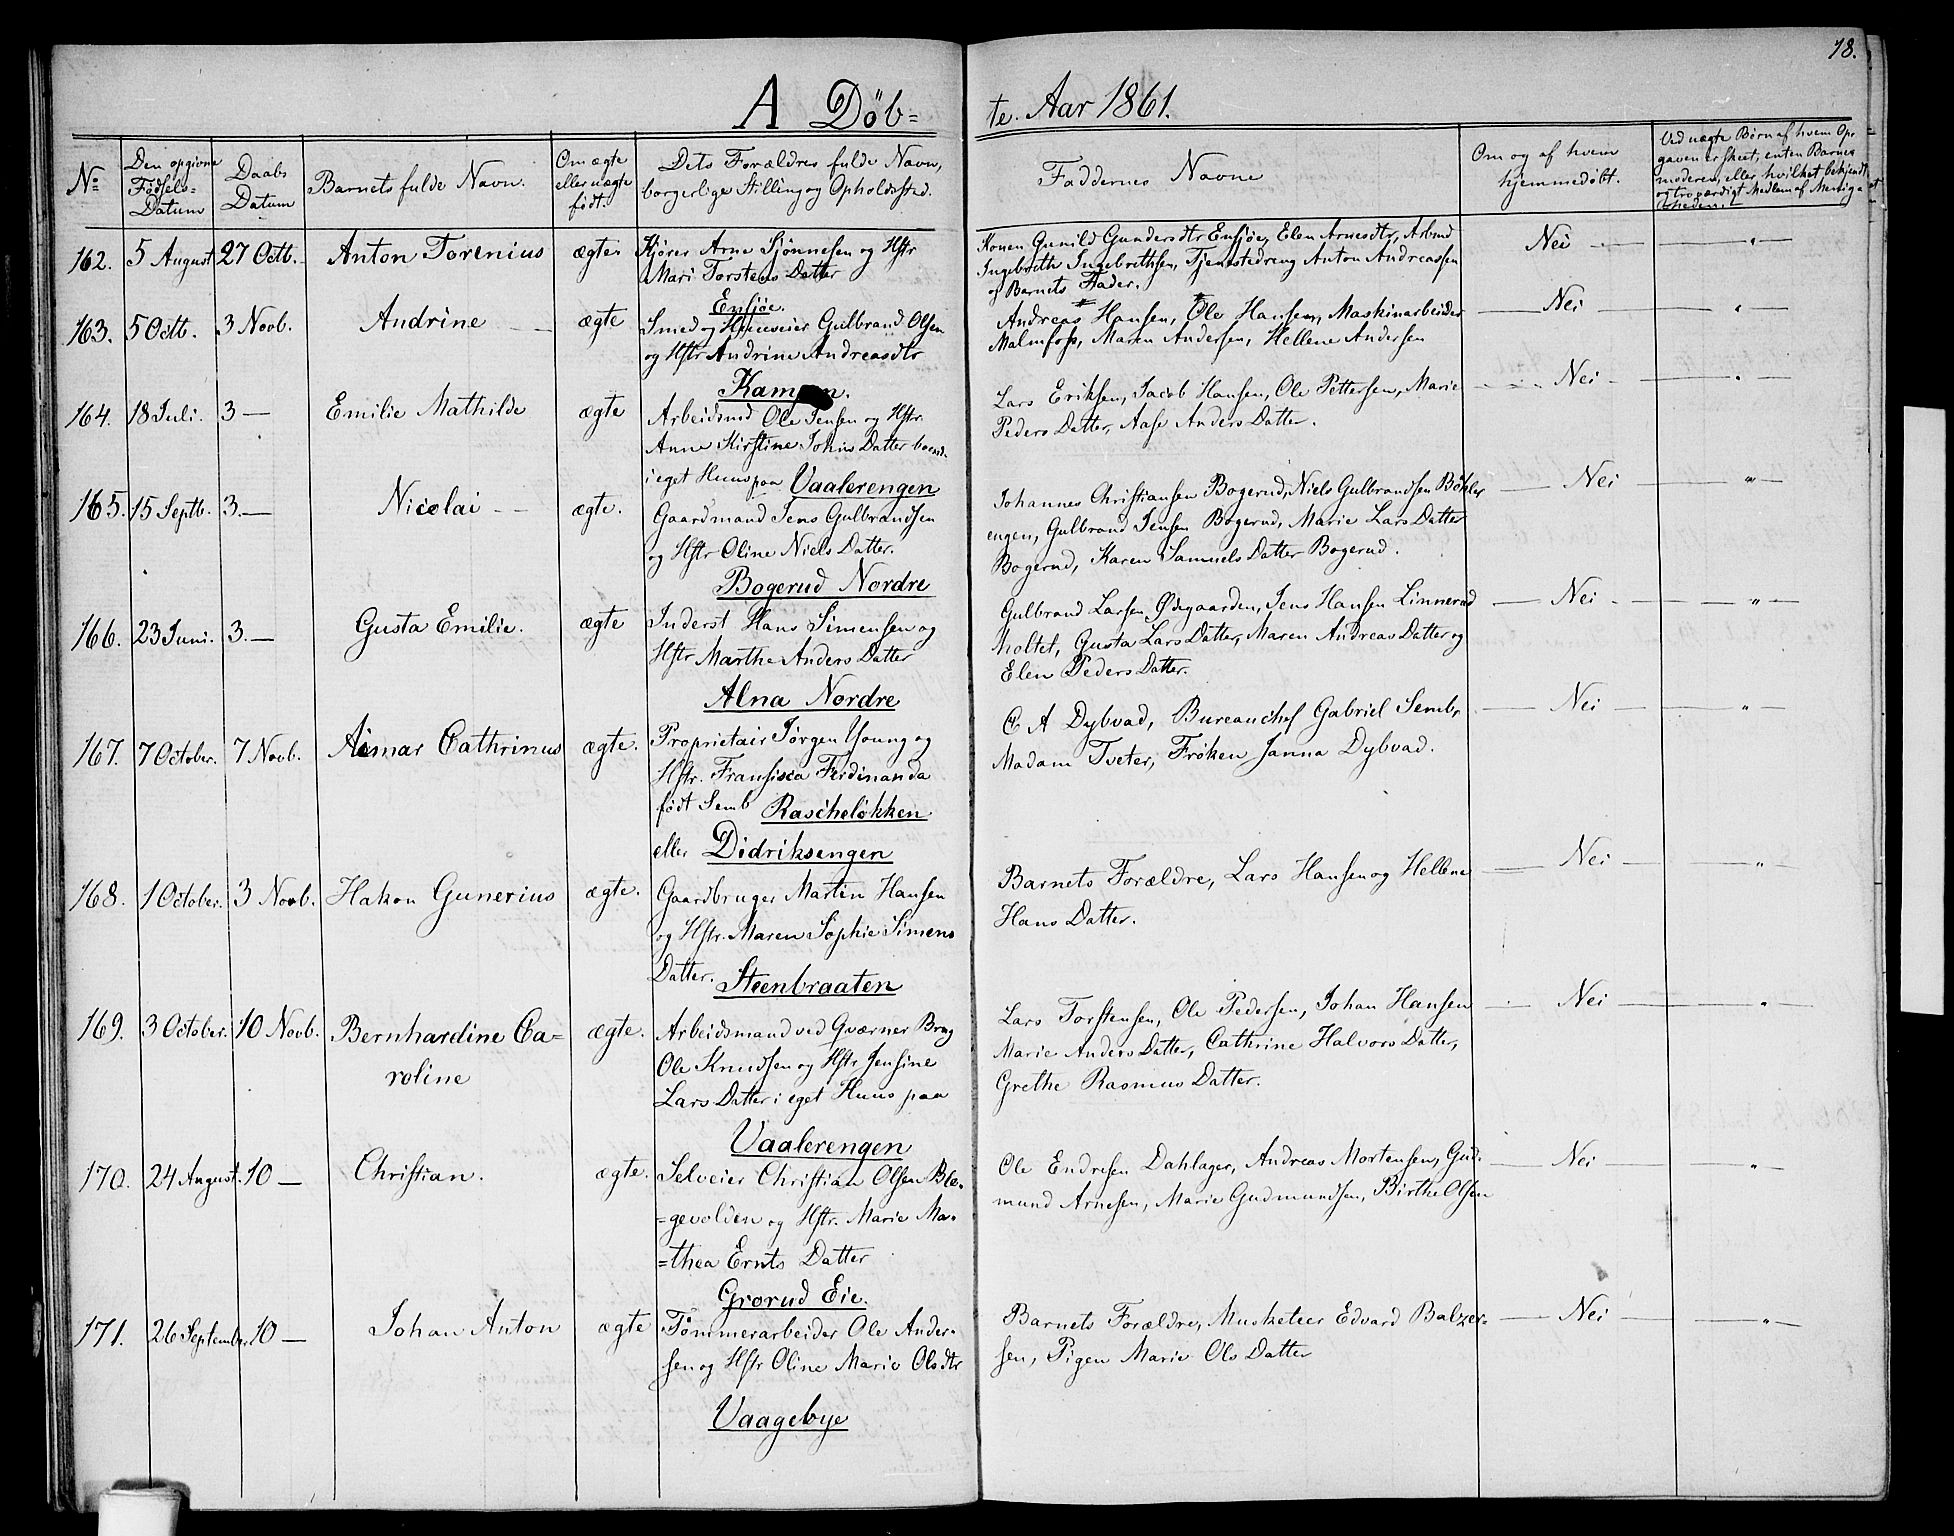 78.
A Døb=
te. Aar 1861.
No
Den opgivne Fødsels-Datum
Daabs Datum
Barnets fulde Navn.
Om ægte eller uægte født.
Dets Forældres fulde Navn, borgerlige Stilling og Opholdssted.
Faddernes Navne
Om og af hvem hjemmedøbt.
Ved uægte Børn af hvem Opgaven er skeet, enten Barnets moderen, eller hvilket bekjendt og troværdigt Medlem af Menigheden.
162. 5 August 27 Octb. Anton Torenius ægte
Kjører Arne Sjønnesen og Hstr
Mari Torstens Datter
Ensjøe.
Konen Gunild Gundersdtr Ensjøe, Elen Arnesdtr, Arbmd
Ingebreth Ingebrethsen, Tjenestedreng Anton Andreassen
og Barnets Fader.
Nei "
163. 5 Octb. 3 Novb. Andrine ægte
Smed og Huuseier Gulbrand Olsen
og Hstr Andrine Andreasdtr
Kampen.
Andreas Hansen, Ole Hansen, Maskinarbeider
Malmfoss, Maren Andersen, Hellene Andersen
Nei "
164. 18 Juli. 3 — Emilie Mathilde ægte
Arbeidsmd Ole Jensen og Hstr.
Anne Kirstine Johns Datter boend.
i eget Huus paa Vaalerengen
Lars Eriksen, Jacob Hansen, Ole Pettersen, Marie
Peders Datter, Aase Anders Datter.
Nei "
165. 15 Septb. 3. — Nicolai ægte.
Gaardmand Jens Gulbrandsen
og Hstr Oline Niels Datter.
Bogerud Nordre
Johannes Christiansen Bogerud, Niels Gulbrandsen Bøhler
engen, Gulbrand Jensen Bogerud, Marie Lars Datter
Bogerud, Karen Samuels Datter Bogerud.
Nei "
166. 23 Juni. 3. — Gusta Emilie. ægte
Inderst Hans Simensen og
Hstr Marthe Anders Datter
Alna Nordre
Gulbrand Larsen Ødegaarden, Jens Hansen Linnerud
Moltet, Gusta Lars Datter, Maren Andreas Datter og
Elen Peders Datter.
Nei "
167. 7 October. 7 Novb. Aimar Cathrinus ægte.
Proprietair Jørgen Young og
Hstr. Fransisca Ferdinanda
født Semb Rascheløkken
eller Didriksengen
C A Dybvad, Bureauchef Gabriel Semb,
Madam Tveter, Frøken Janna Dybvad.
Nei "
168. 1 October. 3 Novb. Hakon Gunerius ægte.
Gaardbruger Martin Hansen
og Hstr. Maren Sophie Simens
Datter. Steenbraaten
Barnets Forældre, Lars Hansen og Hellene
Hans Datter.
Nei "
169. 3 October. 10 Novb. Bernhardine Ca=
roline ægte.
Arbeidsmand ved Qværner Brug
Ole Knudsen og Hstr Jensine
Lars Datter i eget Huus paa
Vaalerengen
Lars Torstensen, Ole Pedersen, Johan Hansen
Marie Anders Datter, Cathrine Halvors Datter,
Grethe Rasmus Datter.
Nei "
170. 24 August. 10 — Christian. ægte.
Selveier Christian Olsen Ble-
=gevolden og Hstr. Marie Ma-
=thea Ernts Datter
Grorud Eie.
Ole Endresen Dahlager, Andreas Mortensen, Gud-
mund Arnesen, Marie Gudmundsen, Birthe Olsen
Nei "
171. 26 September 10 — Johan Anton ægte
Tømmerarbeider Ole Ander-
sen og Hstr Oline Marie Olsdtr
Vaagebye
Barnets Forældre, Musketeer Edvard Balzer-
sen, Pigen Marie Ols Datter
Nei "